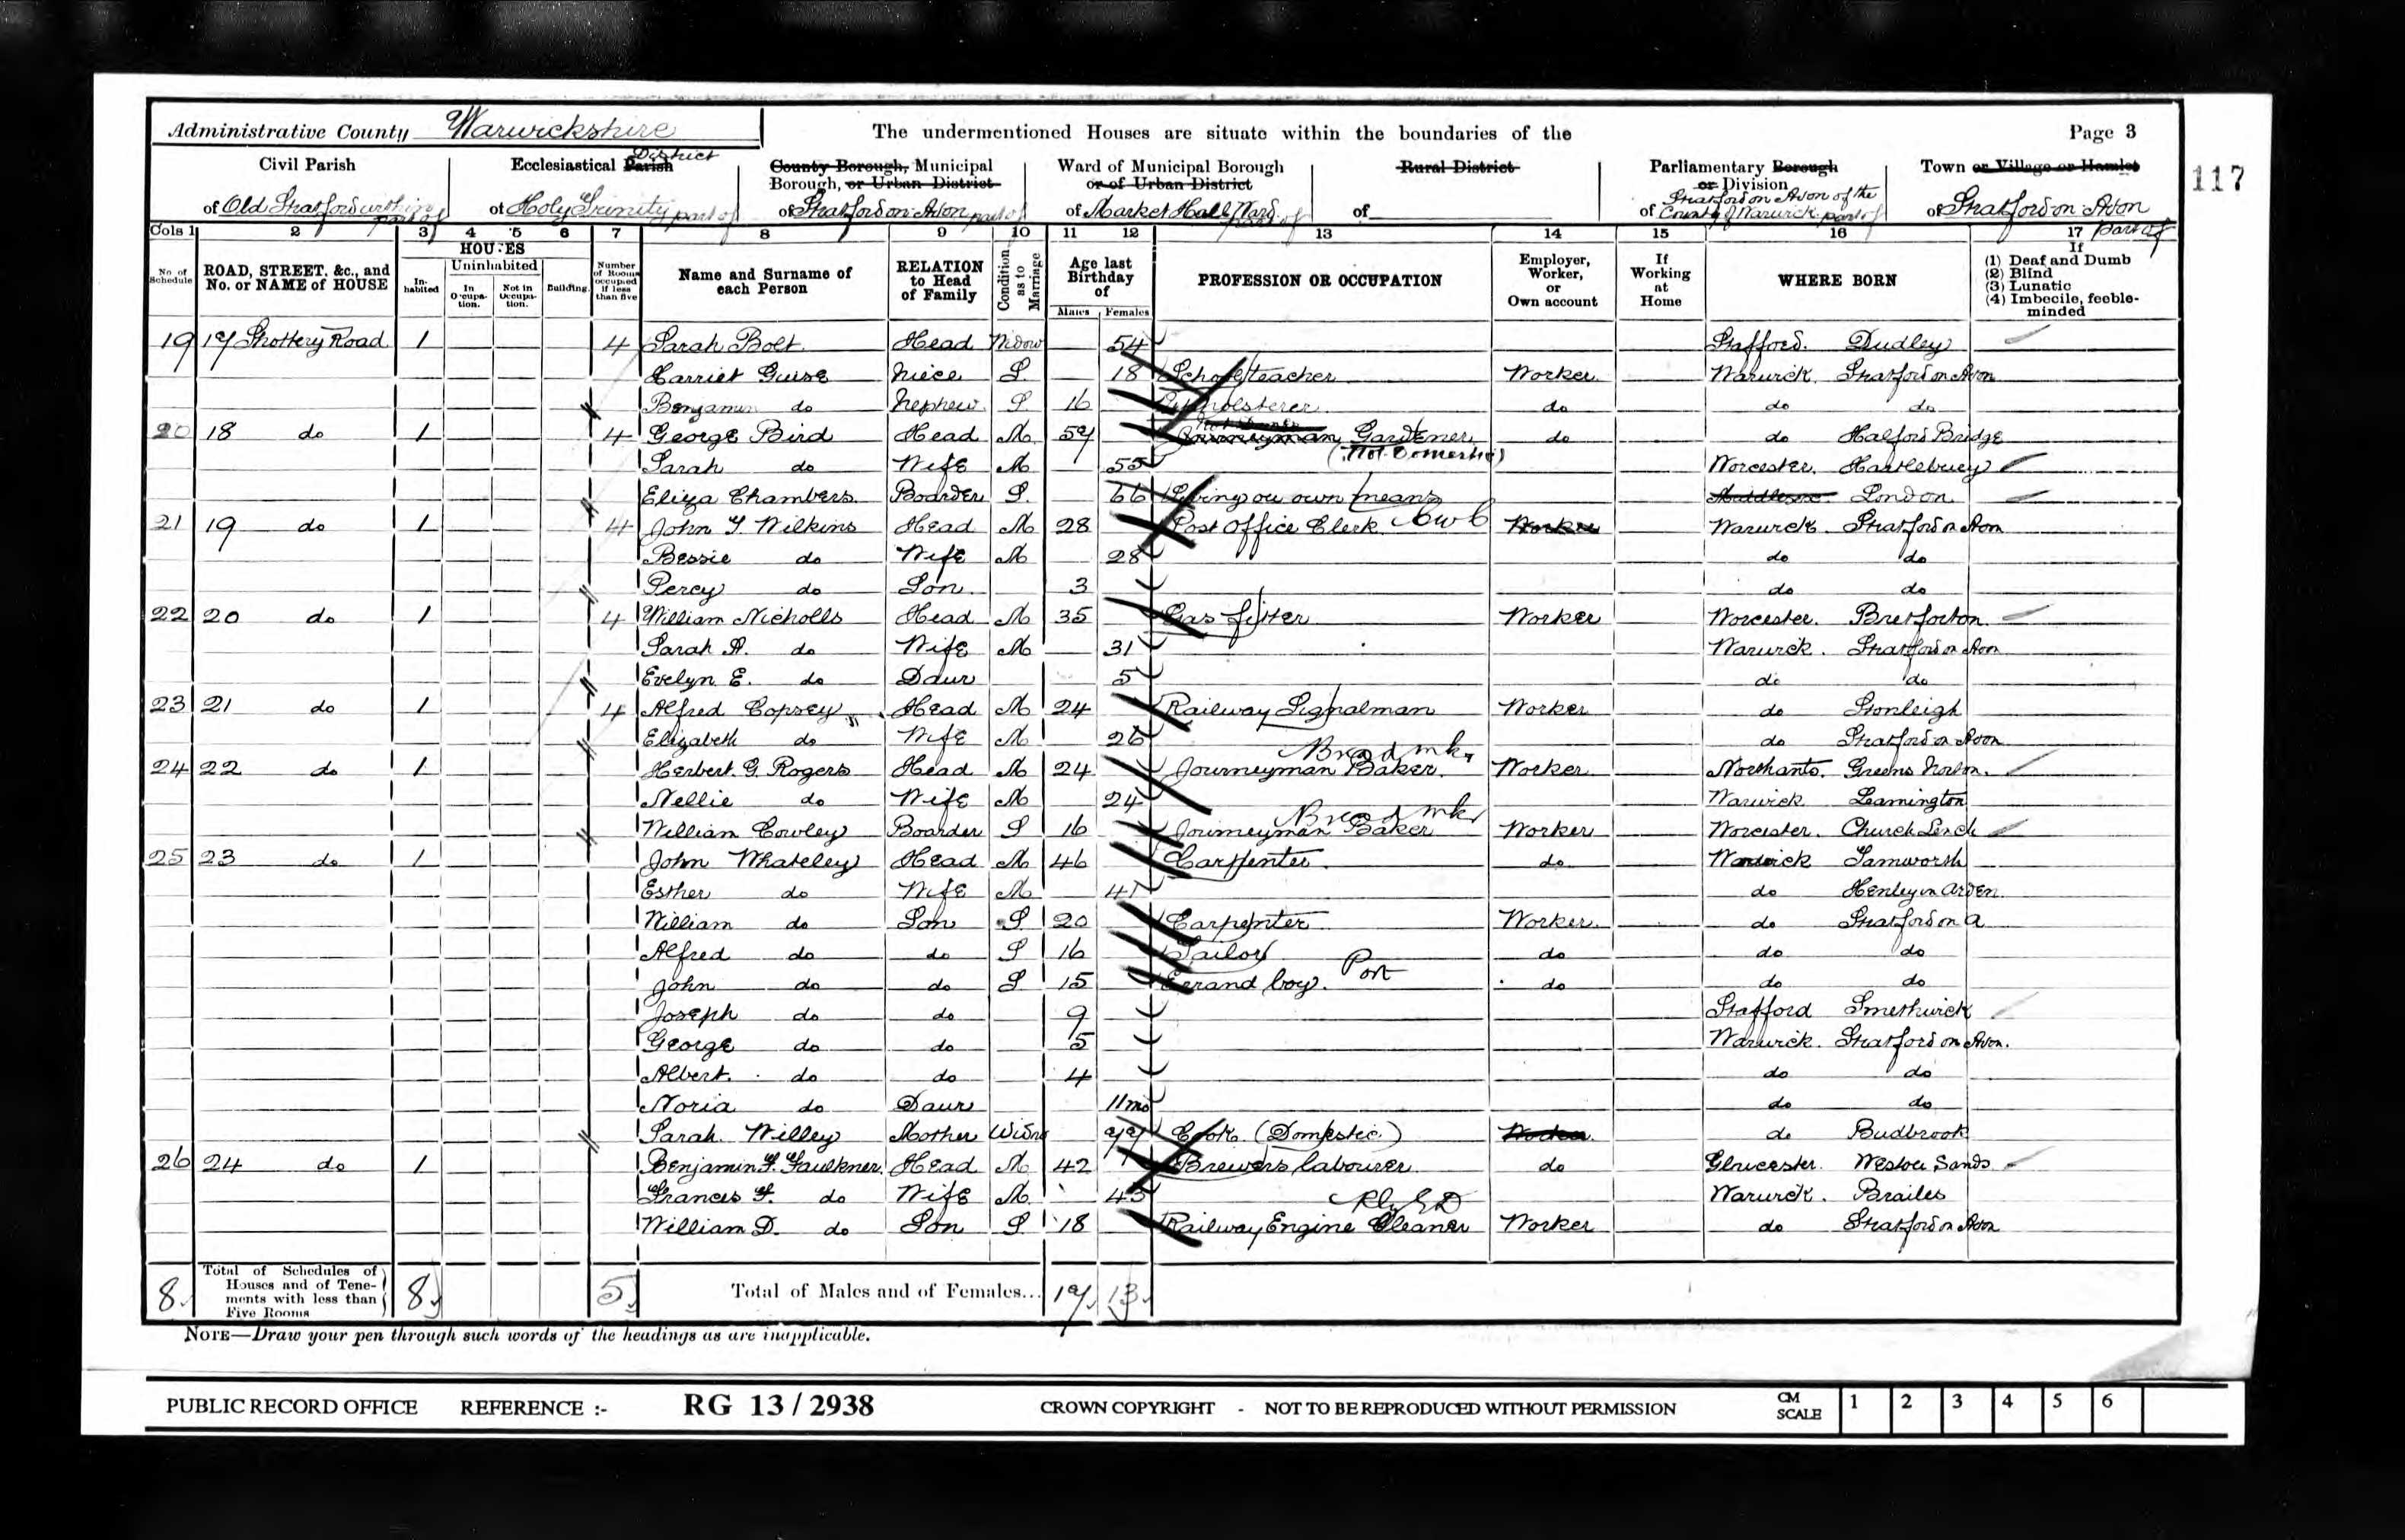 Administrative County Warwickshire The undermentioned Houses are situate within the boundaries of the Page 3
Civil Parish Ecclesiastical Parish District County Borough, Municipal Borough, or Urban District Ward of Municipal Borough or of Urban District Rural District Parliamentary Borough or Division Town or Village or Hamlet
of Old Stratford within part of of Holy Trinity part of of Stratford on Avon part of of Market Hall Ward part of of of Stratford on Avon of the County of Warwick part of of Stratford on Avon part of
117
Cols 1 2 3 4 5 6 7 8 9 10 11 12 13 14 15 16 17
No. of Schedule ROAD, STREET, &c., and No. or NAME of HOUSE HOUSES Inhabited Uninhabited In Occupation. Not in Occupation. Building. Number of Rooms occupied if less than five Name and Surname of each Person RELATION to Head of Family Condition as to Marriage Age last Birthday of Males Females PROFESSION OR OCCUPATION Employer, Worker, or Own account If Working at Home WHERE BORN If (1) Deaf and Dumb (2) Blind (3) Lunatic (4) Imbecile, feeble-minded
19 17 Shottery Road 1 4 Sarah Bolt Head Widow 54 Stafford. Dudley
Harriet Guise Niece S. 18 School teacher Worker Warwick. Stratford on Avon
Benjamin do Nephew S. 16 Upholsterer do do do
20 18 do 1 4 George Bird Head M. 57 Journeyman Gardener (Not Domestic) do do Halford Bridge
Sarah do Wife M 55 Worcester. Hartlebury
Eliza Chambers Boarder S. 66 Living on own means Middlesex London
21 19 do 1 4 John T. Wilkins Head M 28 Post Office Clerk Worker Warwick. Stratford on Avon
Bessie do Wife M 28 do do
Percy do Son 3 do do
22 20 do 1 4 William Nicholls Head M 35 Gas fitter Worker Worcester. Bretforton
Sarah A. do Wife M 31 Warwick. Stratford on Avon
Evelyn E. do Daur 5 do do
23 21 do 1 4 Alfred Copsey Head M 24 Railway Signalman Worker do Stonleigh
Elizabeth do Wife M 26 do Stratford on Avon
24 22 do 1 Herbert G. Rogers Head M 24 Journeyman Baker. Bread mkr Worker Northants. Greens Norton.
Nellie do Wife M 24 Warwick Leamington
William Cowley Boarder S 16 Journeyman Baker Bread mkr Worker Worcester. Church Lench
25 23 do 1 John Whateley Head M 46 Carpenter. do Warwick Tamworth
Esther do Wife M 41 do Henley in Arden.
William do Son S. 20 Carpenter Worker. do Stratford on A
Alfred do do S 16 Tailor do do do
John do do S 15 Errand boy. Port do do do
Joseph do do 9 Stafford Smethwick
George do do 5 Warwick. Stratford on Avon.
Albert. do do 4 do do
Noria do Daur 11mo do do
Sarah Willey Mother Widow 77 Cook (Domestic) Worker do Budbrook
26 24 do 1 Benjamin F. Faulkner Head M 42 Brewers labourer do Gloucester.
Frances F. do Wife M. 43 Warwick. Brailes
William D. do Son S. 18 Railway Engine Cleaner Worker do Stratford on Avon
8 Total of Schedules of Houses and of Tenements with less than Five Rooms 8 5 Total of Males and of Females... 17 13
NOTE—Draw your pen through such words of the headings as are inapplicable.
PUBLIC RECORD OFFICE REFERENCE :- RG 13 / 2938 CROWN COPYRIGHT - NOT TO BE REPRODUCED WITHOUT PERMISSION CM SCALE 1 2 3 4 5 6